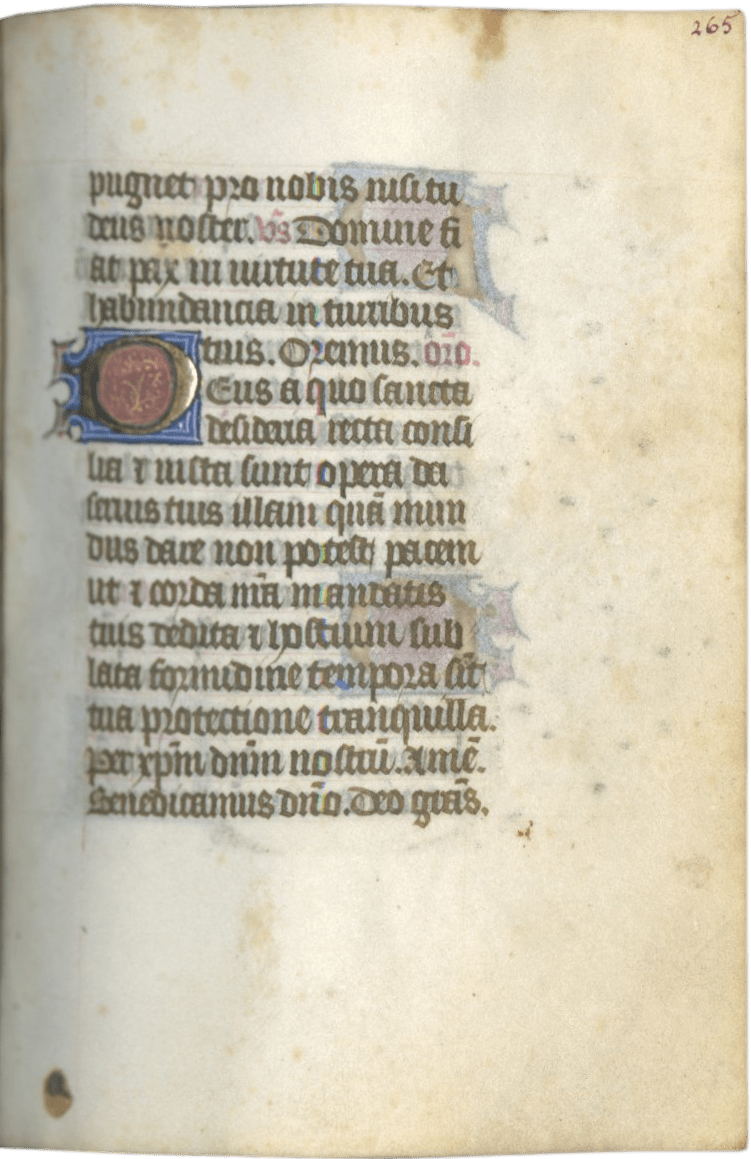 265
pugnet pro nobis nisi tu
deus noster. v̄s Domine fi
at pax in uirtute tua. Et
habundancia in turribus
tuis. Oremus. or̄o.
Deus a quo sancta
desideria recta consi
lia ⁊ iusta sunt opera da
seruis tuis illam quā mun
dus dare non potest pacem
ut ⁊ corda nr̄a mandatis
tuis dedita ⁊ hostium sub
lata formidine tempora sīt
tua protectione tranquilla.
Per xp̄m dn̄m nostrū. Amē.
Benedicamus dn̄o. Deo gr̄as.